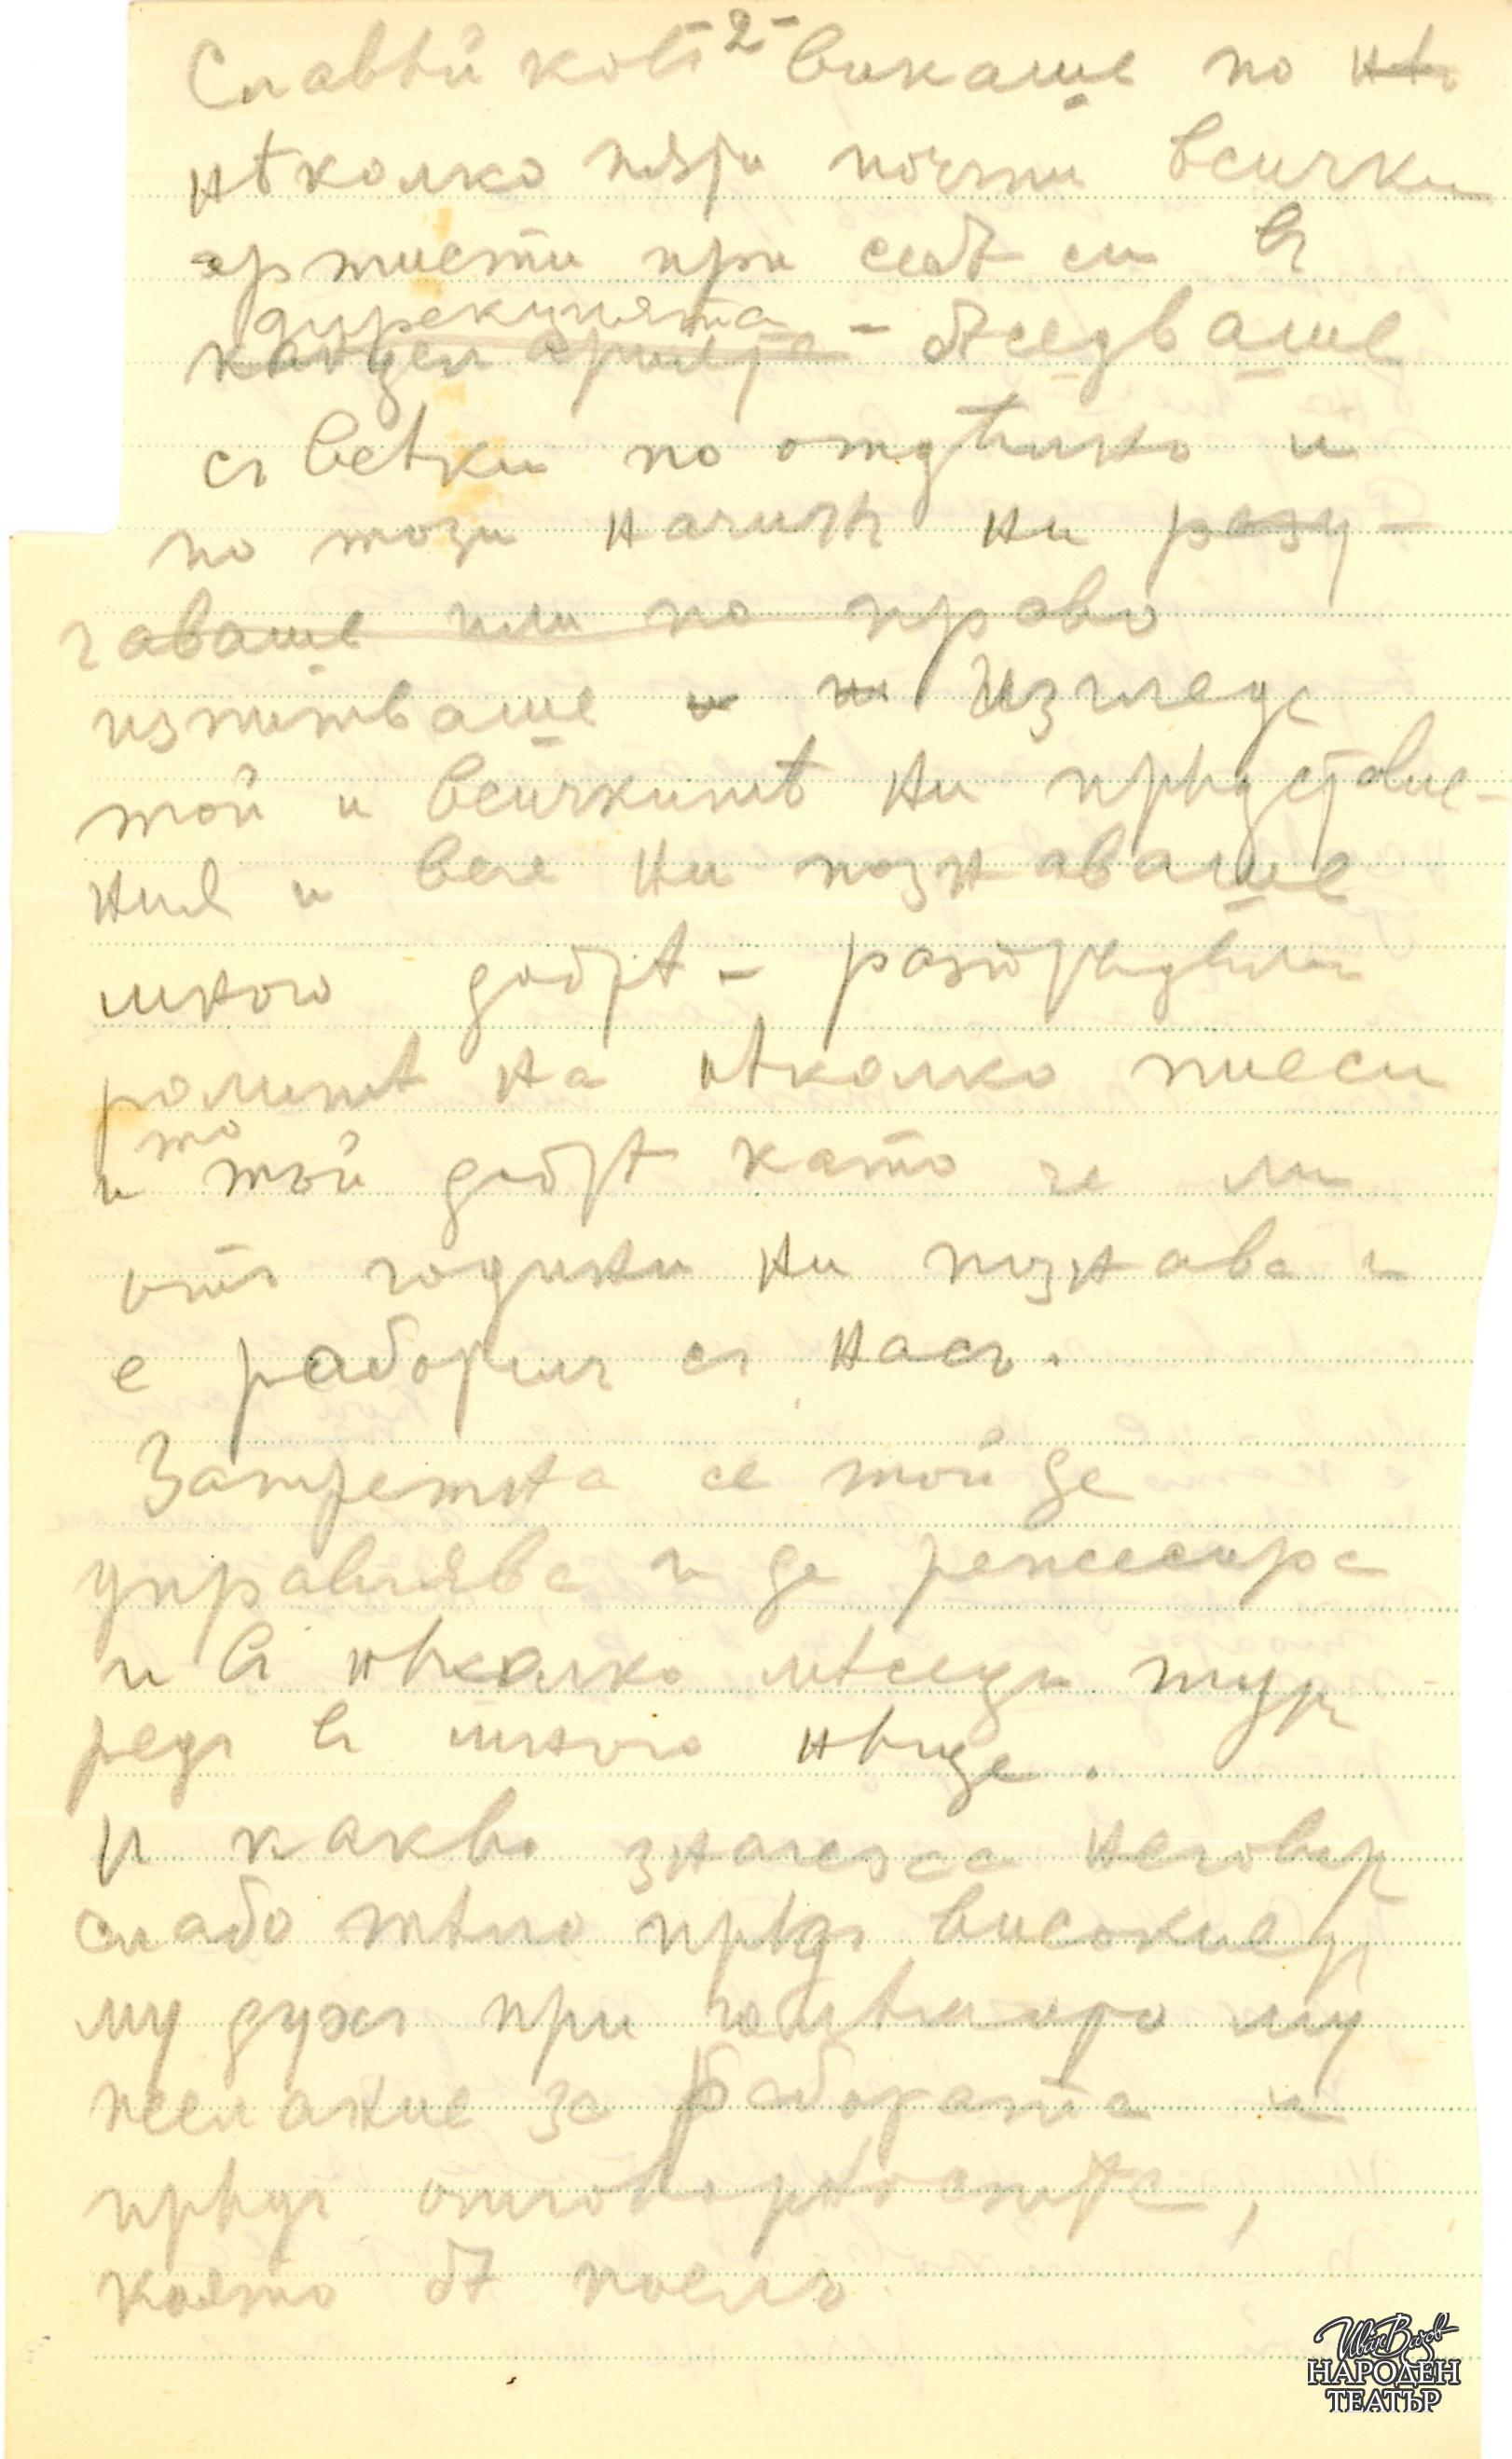 2-
Славѣйковъ викаше по нѣ
нѣколко пѫти почти всички
артисти при себѣ си въ
дирекцията
канцеларията - бѣседваше
съ всѣки по отдѣлно и
по този начинъ ни разу-
чаваше или по право
изпитваше и ни Изгледа
той и всичкитѣ ни прѣдставле-
ния и вече ни познаваше
много добрѣ - разпрѣдѣли
ролитѣ на нѣколко пиеси
то
и той добрѣ като че ли
отъ години ни познава и
е работилъ съ насъ.
Запретна се той да
управлява и да режесира
и въ нѣколко мѣсеци тур
редъ въ много нѣща.
И какво значеха неговото
слабо тѣло прѣдъ високиятъ
му духъ при голѣмото му
желание за работата и
прѣдъ отговорностьта,
която бѣ поелъ
Иван Вазов
НАРОДЕН
ТЕАТЪР